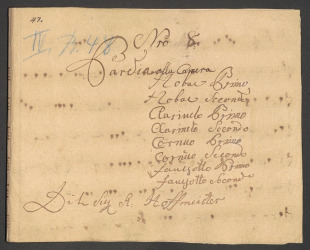 47.
Nro 8.
Parthia alla Camera
Hoboe Primo
Hoboe Secondo
Clarineto Primo
Clarineto Secondo
Cornuo Primo
Cornuo Secondo
Faugotto Primo
Faugotto Secondo
Hoffmeister